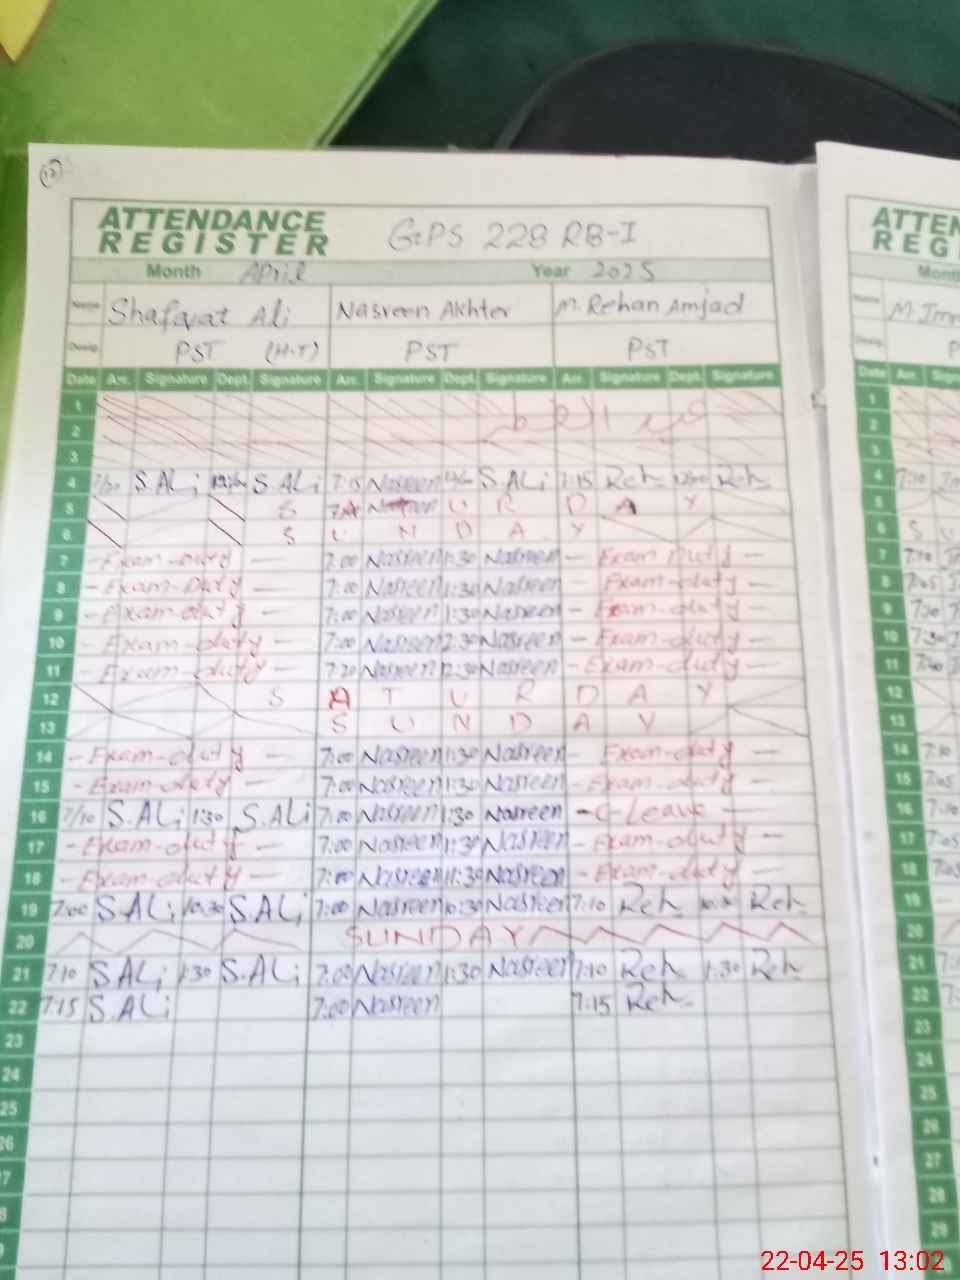 ATTENDANCE REGISTER GPS 228 RB-I
Month April Year 2025
Name Shafaqat Ali Nasreen Akhter M. Rehan Amjad
Desig. PST (H-T) PST PST
Date Arr. Signature Dept. Signature Arr. Signature Dept. Signature Arr. Signature Dept. Signature
1
2 عید الفطر
3
4 S.ALi S.ALi 7:15 Nasreen S.ALi 7:15 Reh 12:00 Reh
5 S A T U R D A Y
6 S U N D A Y
7 - Exam-duty - 7:00 Nasreen 1:30 Nasreen - Exam Duty -
8 - Exam-Duty - 7:00 Nasreen 1:30 Nasreen - Exam-duty -
9 - Exam-duty - 7:00 Nasreen 1:30 Nasreen - Exam-duty -
10 - Exam-duty - 7:00 Nasreen 12:30 Nasreen - Exam-duty -
11 - Exam-duty - 7:20 Nasreen 12:30 Nasreen - Exam-duty -
12 S A T U R D A Y
13 S U N D A Y
14 - Exam-duty - 7:00 Nasreen 1:30 Nasreen - Exam-duty -
15 - Exam-duty - 7:00 Nasreen 1:30 Nasreen - Exam-duty -
16 7/10 S.ALi 1:30 S.ALi 7:00 Nasreen 1:30 Nasreen - C-Leave -
17 - Exam-duty - 7:00 Nasreen 1:30 Nasreen - Exam-duty -
18 - Exam-duty - 7:00 Nasreen 1:30 Nasreen - Exam-duty -
19 7:00 S.ALi 10:30 S.ALi 7:00 Nasreen 10:30 Nasreen 7:10 Reh 10:30 Reh
20 SUNDAY
21 7:10 S.ALi 1:30 S.ALi 7:00 Nasreen 1:30 Nasreen 7:10 Reh 1:30 Reh
22 7:15 S.ALi 7:00 Nasreen 7:15 Reh
23
24
25
26
ATTEN
REG
Month
Name M. Imr
Desig. P
Date Arr.
1
2
3
4 7:10
5
6 S U
7 7:10
8 7:05
9
10 7:30
11
12
13
14 7:10
15 7:05
16 7:10
17 7:05
18 7:05
19
20
21
22
23
24
25
26
27
28
29
22-04-25 13:02